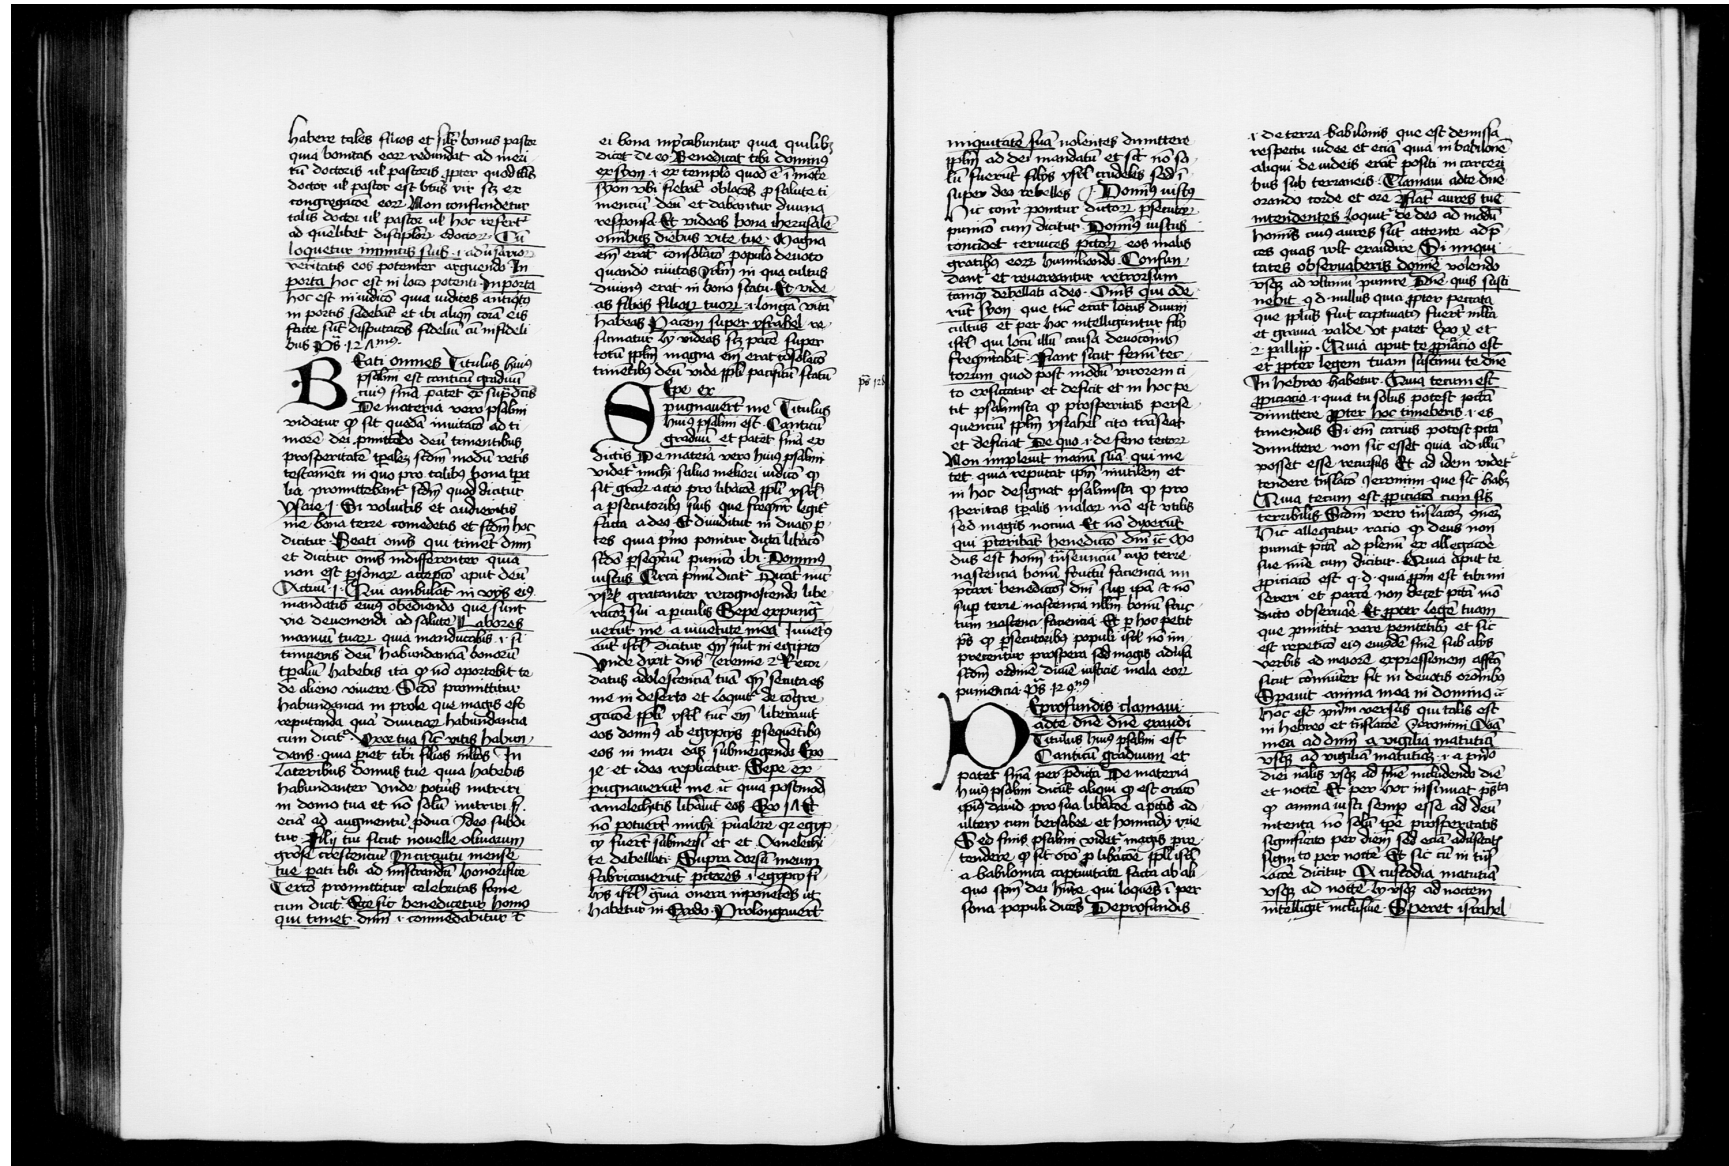 habere tales filios et silr bonus pastor
quia bonitas eorum redundat ad meri
tū doctoris ul pastoris ꝓpter quod talis
doctor ul pastor est btūs vir scz ex
congregacōe eorꝝ Non confundetur
talis doctor ul pastor ul hoc refertr
ad quēlibet discipulorꝝ doctorꝝ Cū
loquetur inimicis suis .i. adūsarios
veritatis eos potenter arguendo In
porta hoc est in loco potenti In porta
hoc est in iudicō quia iudices antiqtꝰ
in portis sedebāt et ibi aliqn̄ corā eis
facte sūt disputacōes fideliū cū infideli
bus ps 127ꝰ
Beati omnes Titulus huiꝰ
psalmi est canticū graduū
cuiꝰ sniā patet ex supdictis
De materia vero psalmi
videtur ꝙ sit quedā invitacō ad ti
morē dei pmittēdo deū timentibus
prosperitatē tpalez scdm modū vetis
testamēti in quo pro talibꝰ bona tpa
lia promittebant scdm quod dicitur
ysaie .i. Si volueritis et audieritis
me bona terre comedetis et scdm hoc
dicitur Beati omēs qui timēt dnm
et dicitur omēs indifferenter quia
non est psonarꝝ acceptō aput deū
Actuū .i. Qui ambulāt in vijs eiꝰ
mandatis eius obediendo que sunt
vie deveniendi ad salutē Labores
manuū tuarꝝ quia manducabis .i. si
timueris deū habundanciā bonorū
tpaliū habebis ita ꝙ nō oportebit te
de alieno vivere Scdō promittitur
habundancia in prole que magis est
reputanda quā divitiarꝝ habundancia
cum dicitr Uxor tua sic vitis habun
dans quia pariet tibi filios mltos In
lateribus domus tue quia habebis
habundanter unde potius nutriri
in domo tua et nō solū nutriri s.
eciā ad augmentū pduci Ideo subdi
tur Filij tui sicut novelle olivarum
grosse crescenciū In circuitu mense
tue pati tibi ad ministrandū honorifice
Terciō promittitur celebritas fame
cum dicit Ecce sic benedicetur homo
qui timet dnm .i. commēdabitur et
ei bona imprecabuntur quia quilibz
dicet de eo Benedicat tibi dominꝰ
ex syon .i. ex templo quod ē ī mōte
syon ubi fiebāt oblatōes p salute ti
menciū deū et dabantur divina
responsa Et videas bona iherusalē
omnibꝫ diebus vite tue Magna
em̄ erat consolacō populo devoto
quando civitas Jrlm in qua cultus
divinꝰ erat in bono statu Et vide
as filios filiorꝝ tuorꝝ .i. longā vitā
habeas Pacem super ysrahel re
sumatur hy videas scz pacē super
totū pplm magna em̄ erat cōsolacō
timētibꝫ deū vide ppli pacificū statū
Sepe ex
pugnaverūt me Titulus
huiꝰ psalmi est Canticū
graduū et patet sniā ex
dictis De materia vero huiꝰ psalmi
videtr michi salvo meliori iudicō ꝙ
sit grarꝝ actio pro libacōe ppli ysrl
a psecutoribꝫ suis que freqntr legitr
facta a deo Et dividitur in duas p
tes quia pmo ponitur dicta libacō
scdo psequenciū punicio ibi Dominus
iustus Circa pmū dicit Dicat nūc
ysrl gratanter recognoscendo libe
racōez sui a piculis Sepe expung
verūt me a iuventute mea Juvetꝰ
aūt isrl dicatur qn̄ fuit in egipto
Unde dicit dns Jeremie 2 Recor
datus adolescencia tua qn̄ secuta es
me in deserto et loquitr de cōgre
gacōe ppli ysrl tūc em̄ liberavit
eos domnꝰ ab egypcijs psequētibꝫ
eos in mari eas submergendo Exo
14 et ideo replicatur Sepe ex
pugnaverūt me ic quia postmodū
amelechitis libavit eos Exo 17 Et
nō potuerūt michi pvalere qr egyp
cij fuerūt submersi et et Amelechi
te debellati Supra dorsū meum
fabricaverūt pctores .i. egypcij fi
lijs isrl gravia onera imponētes ut
habetur in Exodo Prolongaverūt
ps 128
iniquitatē suā nolentes dimittere
pplm ad dei mandatū et sic nō so
lū fuerūt filijs ysrl crudeles sed ī
super deo rebelles Dominꝰ iustꝰ
Hic contr ponitur dictorꝝ psecutorꝝ
punicō cum dicitur Dominꝰ iustus
concidet cervices pctorꝝ eos malis
gratibꝫ eorꝝ humiliando Confun
dantr et revereantur retrorsum
tamqꝫ debellati a deo Omēs qui ode
rūt syon que tūc erat locus divini
cultus et per hoc intelliguntur filij
isrl qui locū illū causā devocionis
freqntabāt Fiant sicut fenū tec
torum quod post modicū virorem ci
to exsiccatur et deficit et in hoc pe
tit psalmista ꝙ prosperitas perse
quenciū pplm ysrahel cito trāseat
et deficiat De quo .i. de feno tectorꝝ
Non implevit manū suā qui me
tet quia reputat ipm inutilem et
in hoc designat psalmista ꝙ pro
speritas tpalis malorꝝ nō est utilis
sed magis nociva Et nō dixerūt
qui pteribāt benedictō dm̄ ic Mo
dus est homī tnseunciū circa terre
nascencia bonū fructū faciencia im
prari benedictōez dni sup ipa et nō
sup terre nascencia nllm bonū fruc
tum nascenti faciencia Et p hoc petit
ps ꝙ psecutoribꝫ populi isrl nō im
precentur prospera sed magis adūsa
scdm ordinē divīe iusticie mala eorꝝ
puniencia ps 129ꝰ
De profundis clamavi
ad te dn̄e dn̄e exaudi
Titulus huiꝰ psalmi est
Canticū graduum et
patet sniā per pdicta De materia
huiꝰ psalmi dicūt aliqui ꝙ est oratō
ipiꝰ david pro sua libacōe a pctis ad
ulterij cum bersabee et homicidij urie
Sed finis psalmi videtr magis pre
tendere ꝙ sit orō p libacōe ppli isrl
a babilonica captivitate facta ab ali
quo spm dei hnte qui loquēs ī per
sona populi dicēs De profundis
.i. de terra babilonis que est demissa
respectu iudee et eciā quia in babilone
aliqui de iudeis erāt positi in carceri
bus sub terraneis Clamavi ad te dn̄e
orando corde et ore Fiāt aures tue
intendentes loquitr de deo ad modū
homīs cuiꝰ aures sūt attente ad p
ces quas vult exaudire Si iniqui
tates observaveris domīe volendo
usqꝫ ad ultimū punire Dn̄e quis susti
nebit q d nullus quia ꝓpter peccata
que pplus fuit captivatꝰ fuerūt mlta
et gravia valde ut patet Exo et
2 paralipp Quia aput te ppiciacio est
et ꝓpter legem tuam sustinui te dn̄e
In hebreo habetur Quia tecum est
ppiciacio .i. quia tu solus potest pctā
dimittere ꝓpter hoc timeberis .i. es
timendus Si em̄ carius potest pctā
dimittere non sic esset quia ad illū
posset esse recursus Et ad idem videtr
tendere tnslacō Jeronimi que sic habz
Quia tecum est ppiciacō cum sis
terribilis Scdm vero tnslacōez nram
Hic allegatur racio ꝙ deus non
puniat pctā ad plenū ex allegacōe
sue mīe cum dicitur Quia aput te
ppiciacō est q d quia ppm est tibi mi
sereri et parcē non decet pctā mō
dicto observare Et ꝓpter legē tuam
que pmittit vere penitētibꝫ et sic
est repeticō eiꝰ eiusdē sniē sub alijs
verbis ad maiorē expressionem affectꝰ
sicut cōmuniter fit in devotis oracōibꝫ
Speravit anima mea in domino ic
Hoc est pnī versus qui talis est
in hebreo et tnslacōe Jeronimi Aīa
mea ad dnm a vigilia matutia
usqꝫ ad vigiliā matutinā .i. a pmo
diei nalis usqꝫ ad finē includendo diē
et noctē Et per hoc insinuat pssta
ꝙ anima iusti semp esse ad deū
intenta nō solū tpe prosperitatis
significato per diem sed eciā adūsitatis
significato per noctē Et sic cū in tns
lacōe dicitur A custodia matutina
usqꝫ ad noctē ly usqꝫ ad noctem
intelligitr inclusive Speret israhel